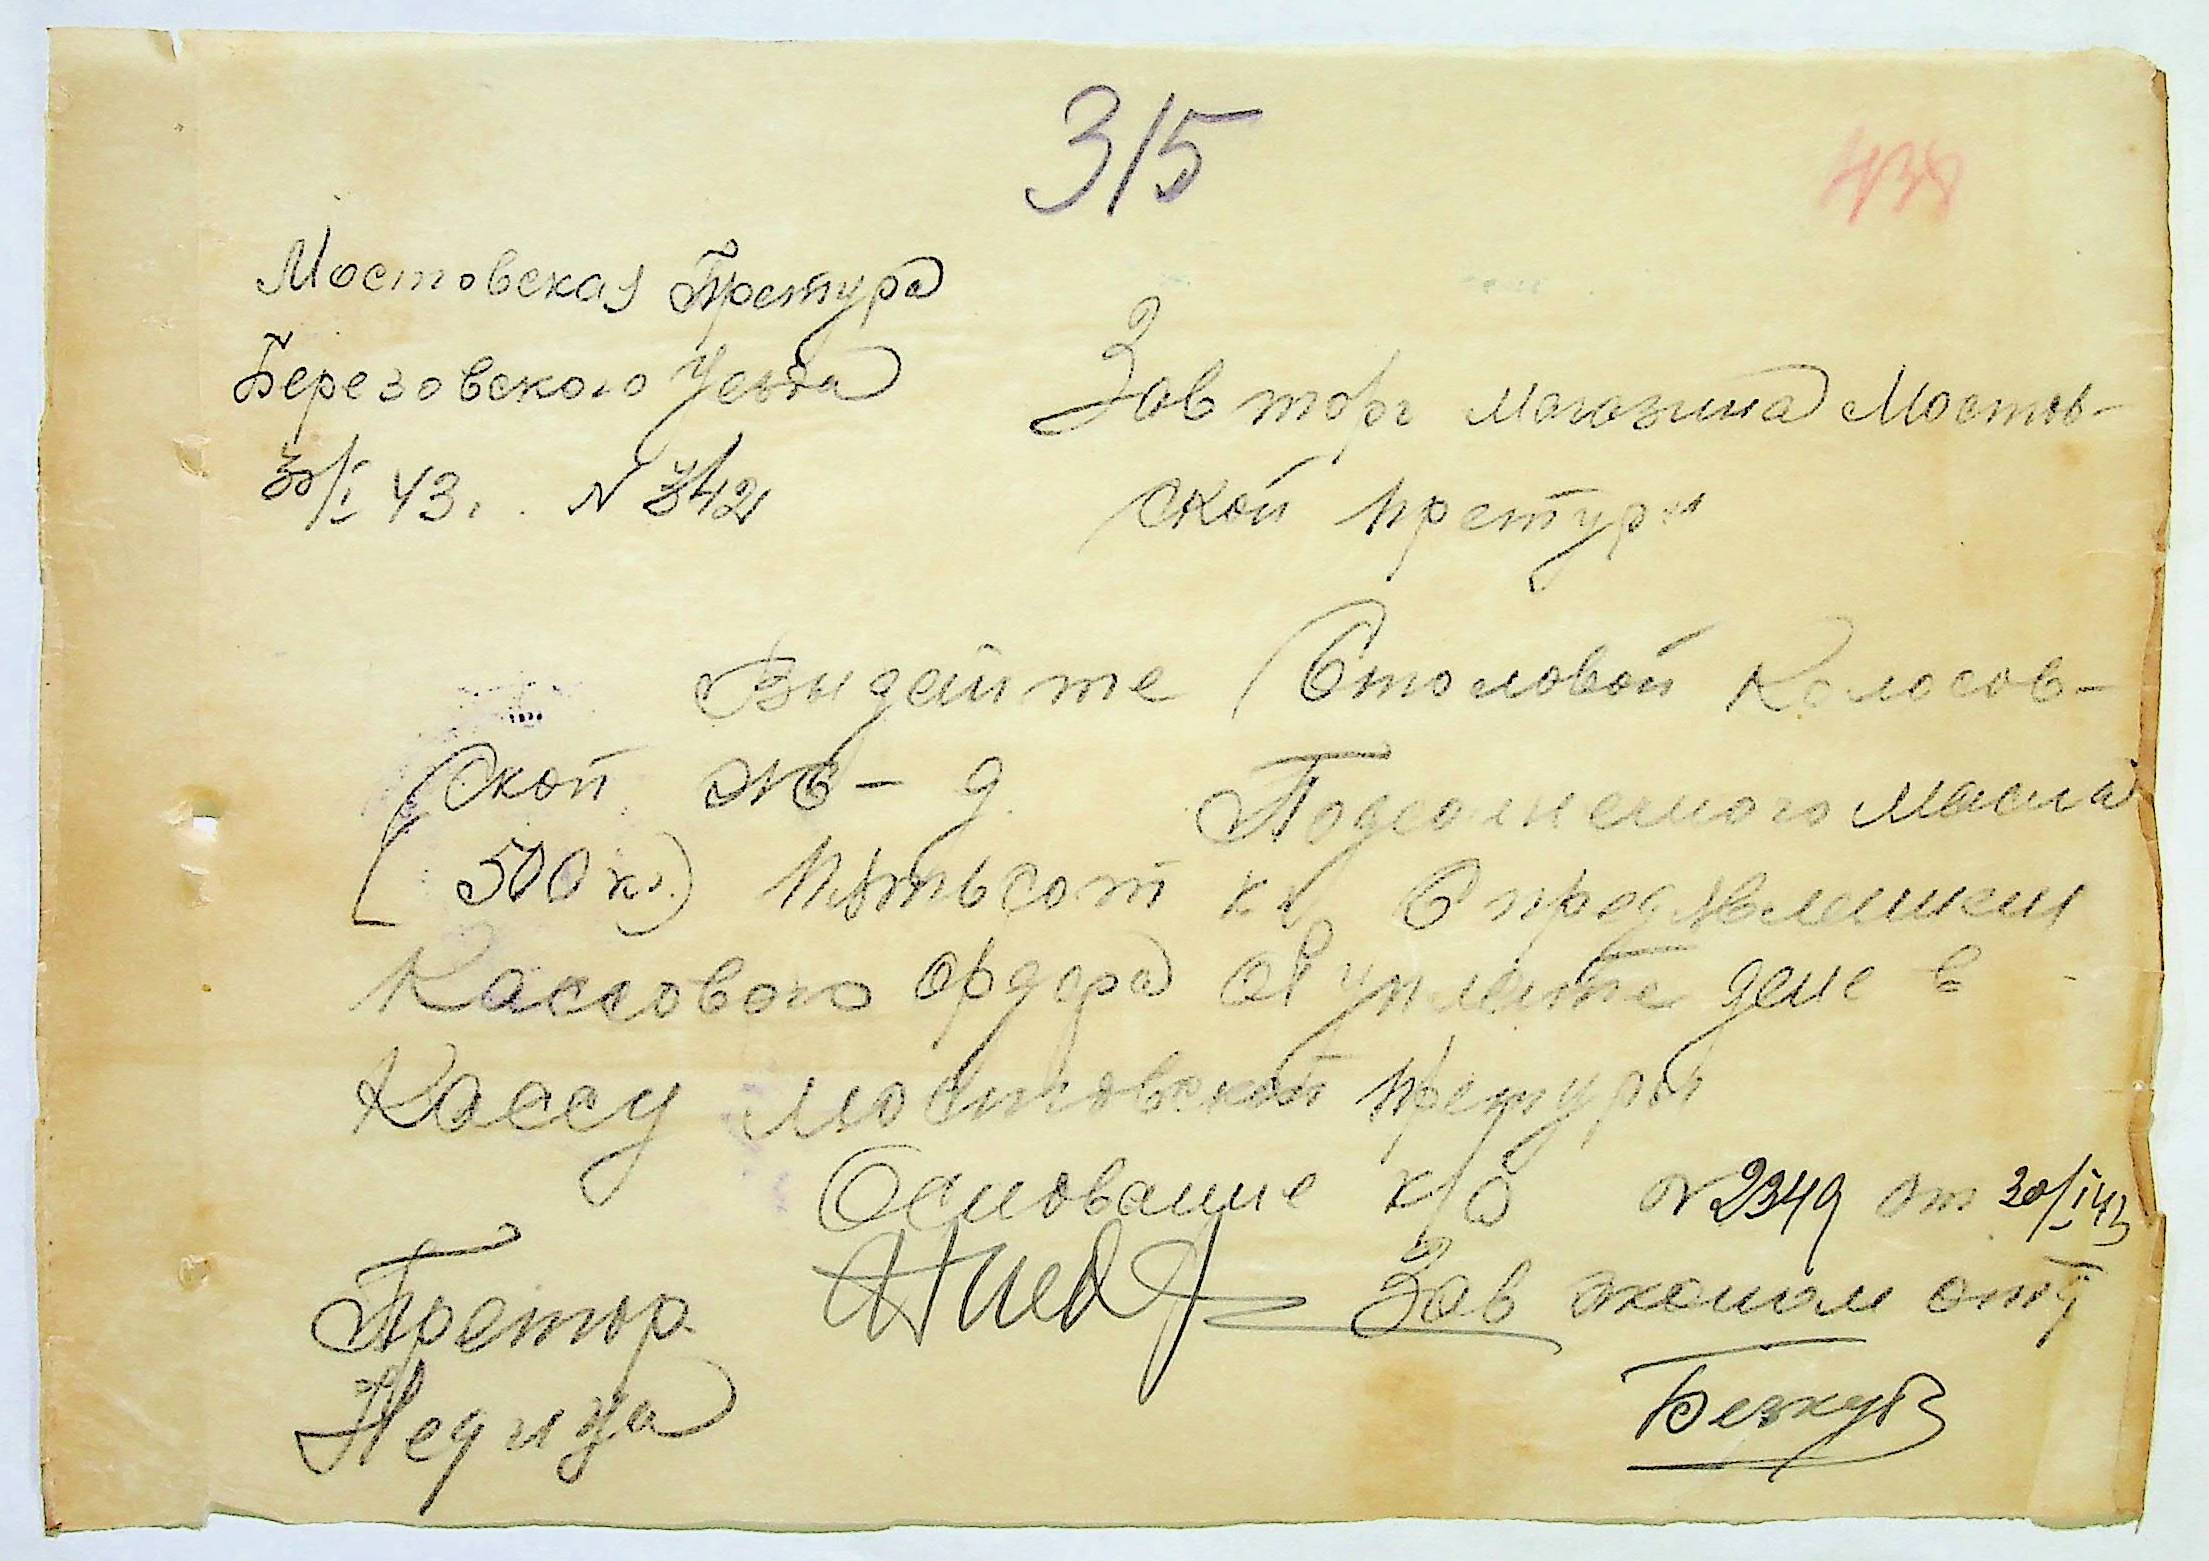 315
438
Мостовская Претура
Березовского Уезда
30/I 43г. N 342
Зав торг магазина Мостов-
ской претуры
Выдайте Столовой Колосов-
ской ж-д. Подсолнечного масла
(500 кг.) пятьсот кг С предявлением
Кассового ордера об уплате денг в
Кассу Мостовской претуры
Основание к/о N 2349 от 30/I 43
Претор Зав эконом отд